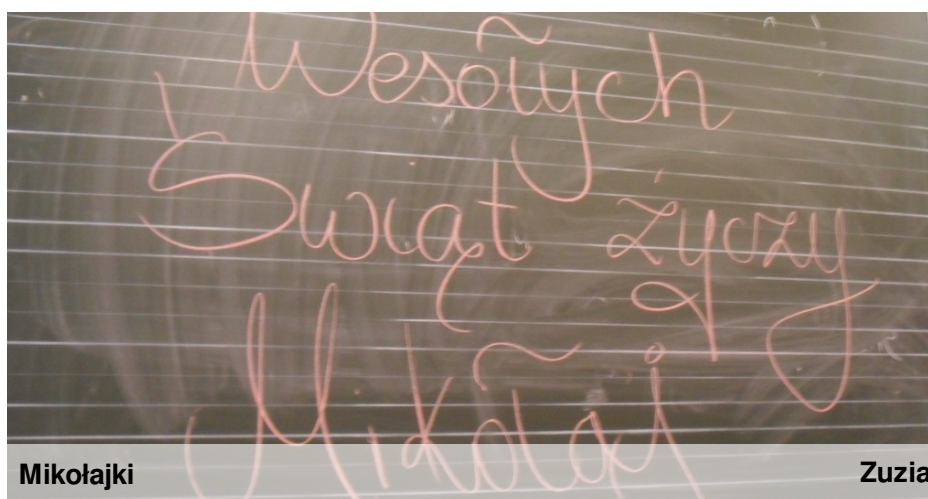 Wesołych
Świąt życzy
Mikołaj
Mikołajki
Zuzia